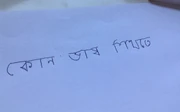 কোন ভাষা শিখতে